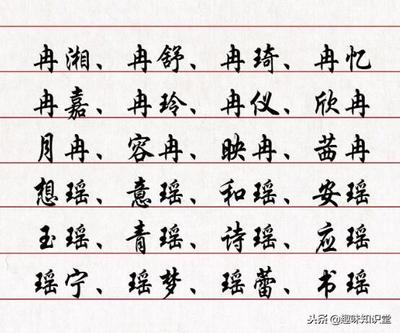 冉湘、冉舒、冉琦、冉忆
冉嘉、冉玲、冉仪、欣冉
月冉、容冉、映冉、茜冉
想瑶、意瑶、和瑶、安瑶
玉瑶、青瑶、诗瑶、应瑶
瑶宁、瑶梦、瑶蕾、书瑶
头条 @趣味知识堂